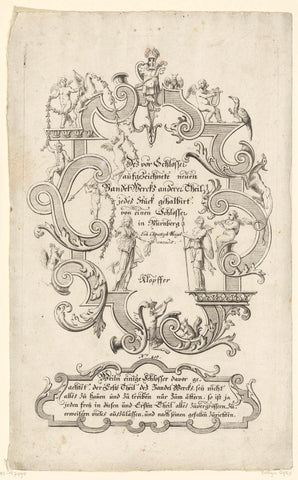 Des vor Schlösser
aufgezeichnete neuen
Bandel-Wercks anderer Theil,
jedes Stück gehalbirt
von einen Schlosser
in Nürnberg
Joh Christoph Weigel
excudit
Klopffer
Weiln einige Schlösser davor ge-
achtet, der Erste Theil des Bandel Wercks sey nicht
alles zu hauen und zu treiben nur zum ätzen, so ist ja
jeden frey in diesen und Ersten Theil alles zu vergrössern, zu
erweitern auszulassen, und nach seinen gefallen zurichten.